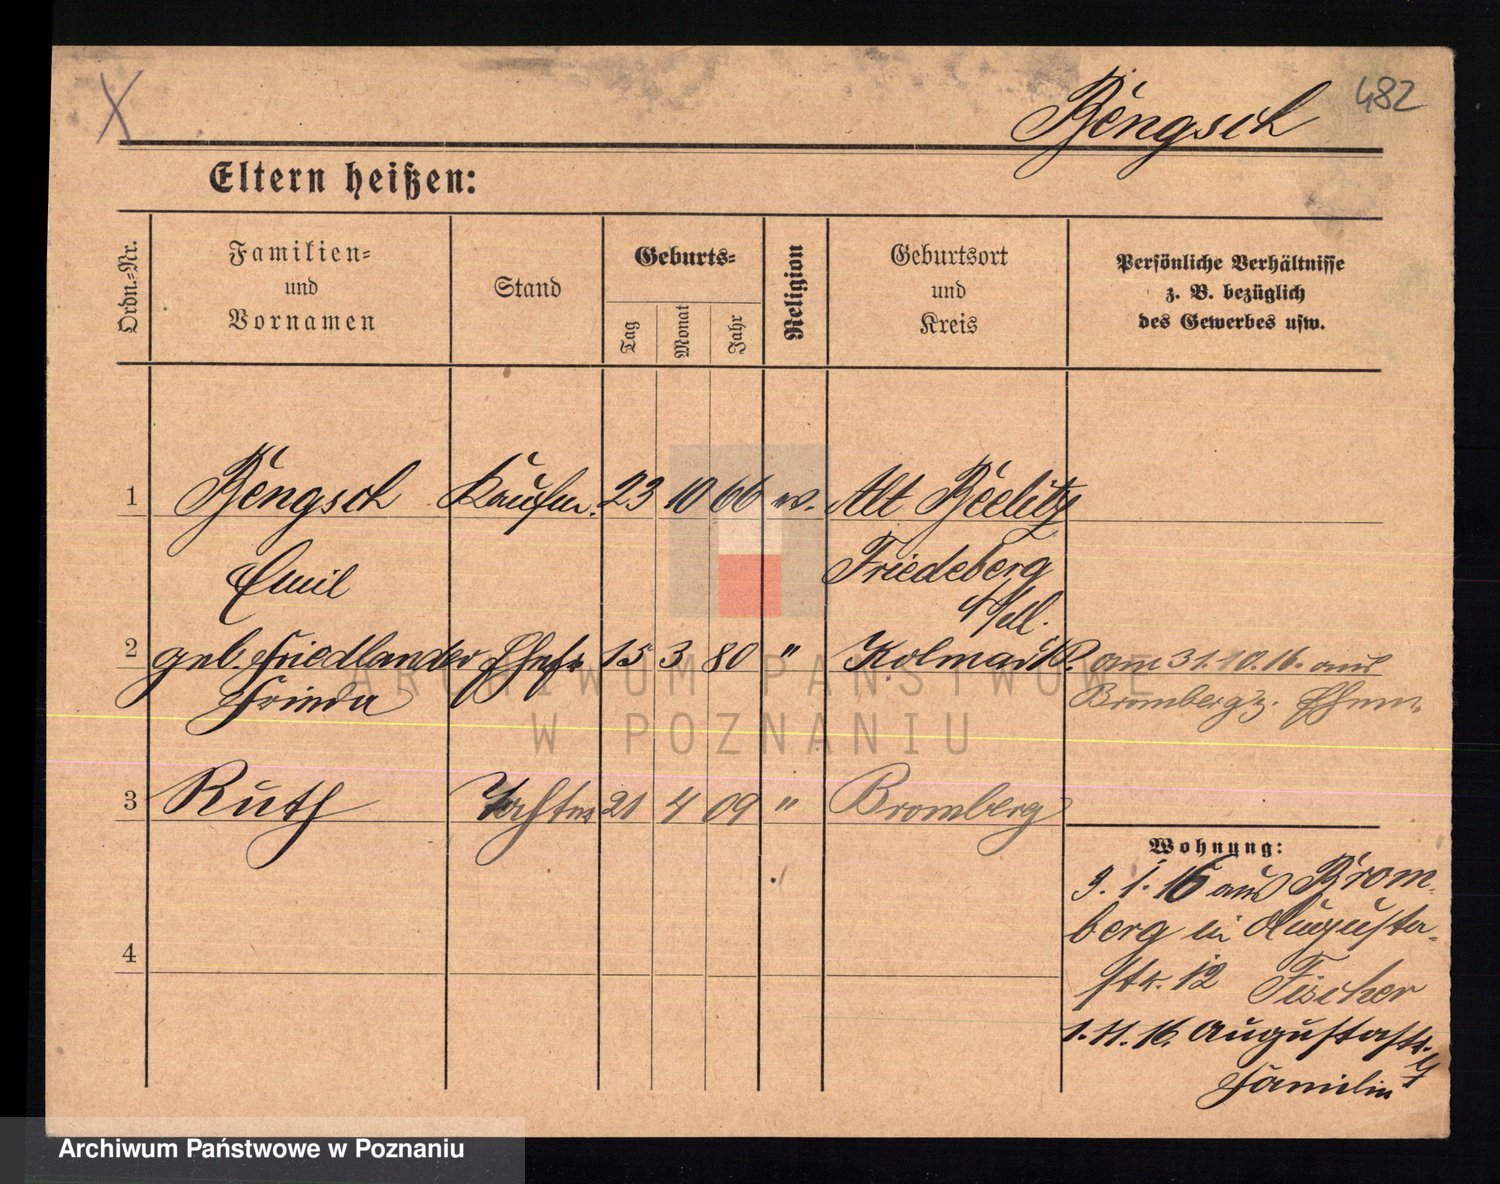 482
Bengsch
Eltern heißen:
Ordn.=Nr.
Familien=
und
Vornamen
Stand
Geburts=
Tag
Monat
Jahr
Religion
Geburtsort
und
Kreis
Persönliche Verhältnisse
z. B. bezüglich
des Gewerbes usw.
1 Bengsch Kaufm. 23 10 66 ev. Alt Beelitz
Emil Friedeberg
2 geb. Friedlander Ehefr 15 3 80 " Kolmar P. am 31.10.16. aus
Frieda Bromberg z. Ehem.
3 Ruth Tochter 21 4 09 " Bromberg
Wohnung:
3.1.16 aus Brom-
berg in Augusta-
4
str. 12 Fischer
1.11.16. Augustastr.
Familie
ARCHIWUM PAŃSTWOWE
W POZNANIU
Archiwum Państwowe w Poznaniu